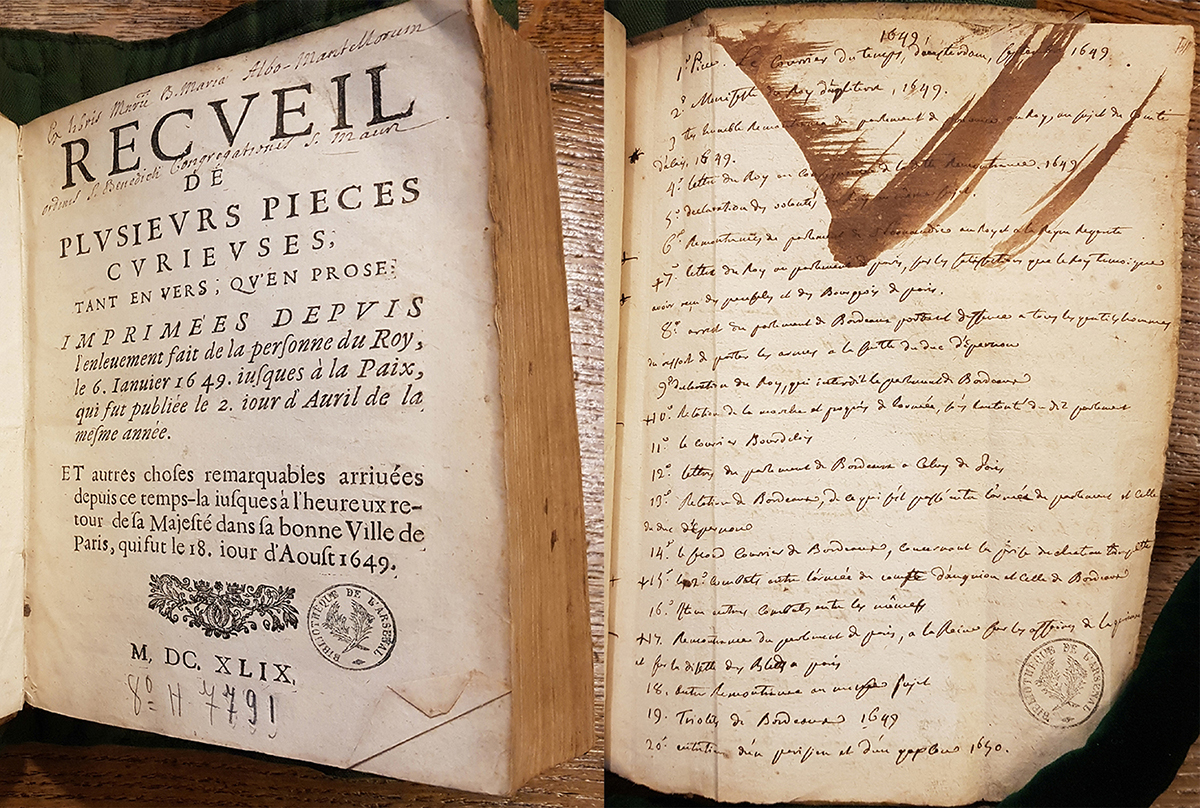 Ex libris Mon.rii B. Mariæ Albo-Mantellorum
RECVEIL
ordinis S. Benedicti Congregationis S. Mauri
DE
PLVSIEVRS PIECES
CVRIEVSES,
TANT EN VERS, QV'EN PROSE:
IMPRIMÉES DEPVIS
l'enleuement fait de la personne du Roy,
le 6. Ianuier 1649. iusques à la Paix,
qui fut publiée le 2. iour d'Auril de la
mesme année.
ET autres choses remarquables arriuées
depuis ce temps-la iusques à l'heureux re-
tour de sa Majesté dans sa bonne Ville de
Paris, qui fut le 18. iour d'Aoust 1649.
BIBLIOTHÈQUE DE L'ARSENAL
M. DC. XLIX.
8º H 7791
1649
1º Le Courrier du temps, d'amsterdam, 1649.
2º Manifeste du Roy 1649.
3 tres humble Remontrance du parlement au Roy, au sujet du
1649.
4º lettre du Roy Remontrance. 1649
5º declaration des volontés
6º Remontrances du parlement au Roy et a la Reyne Regente
+7º lettre du Roy au parlement de paris, sur les satisfactions que le Roy temoigne
avoir des et des Bourgeois de paris.
8º arrest du parlement de Bordeaux portant deffence a tous les gentilshommes
du ressort de porter les armes a la suitte du duc d'épernon
9º declaration du Roy, qui interdit le parlement de Bordeaux
+10º Relation de la marche et progrès de l'armée, du dit parlement
11º le courrier Bourdelois
12º lettres du parlement de Bordeaux a Celuy de paris
13º Relation de Bordeaux, de ce qui s'est passé entre l'armée du parlement et Celle
du duc d'épernon
14º le second Courrier de Bordeaux, concernant la prise du chateau trompette
+15º combats entre l'armée du comte et Celle de Bordeaux
16º autres Combats entre les mêmes
+17. Remontrances du parlement de paris, a la Reine sur les affaires de la guienne
et sur la disette des Bleds a paris
18. autre Remontrance au mesme sujet
19. Triolets de Bordeaux 1649
20º d'un parisien et d'un 1650.
BIBLIOTHÈQUE DE L'ARSENAL